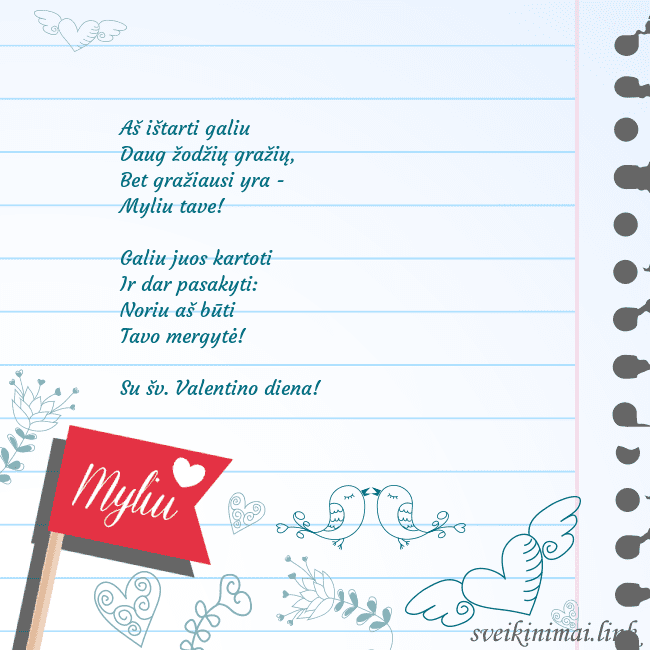 Aš ištarti galiu
Daug žodžių gražių,
Bet gražiausi yra -
Myliu tave!
Galiu juos kartoti
Ir dar pasakyti:
Noriu aš būti
Tavo mergytė!
Su šv. Valentino diena!
Myliu
sveikinimai.link